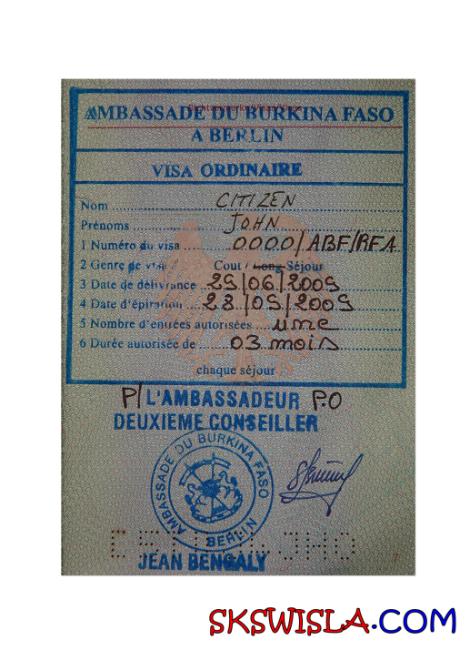 AMBASSADE DU BURKINA FASO
A BERLIN
VISA ORDINAIRE
Nom CITIZEN
Prénoms JOHN
1 Numéro du visa 0000/ABF/RFA
2 Genre de visa Court / Long Séjour
3 Date de délivrance 29/06/2009
4 Date d'épiration 28/09/2009
5 Nombre d'entrées autorisées une
6 Durée autorisée de 03 mois
chaque séjour
P/ L'AMBASSADEUR P.O
DEUXIEME CONSEILLER
AMBASSADE DU BURKINA FASO
BERLIN
JEAN BENGALY
7
SKSWISLA.COM